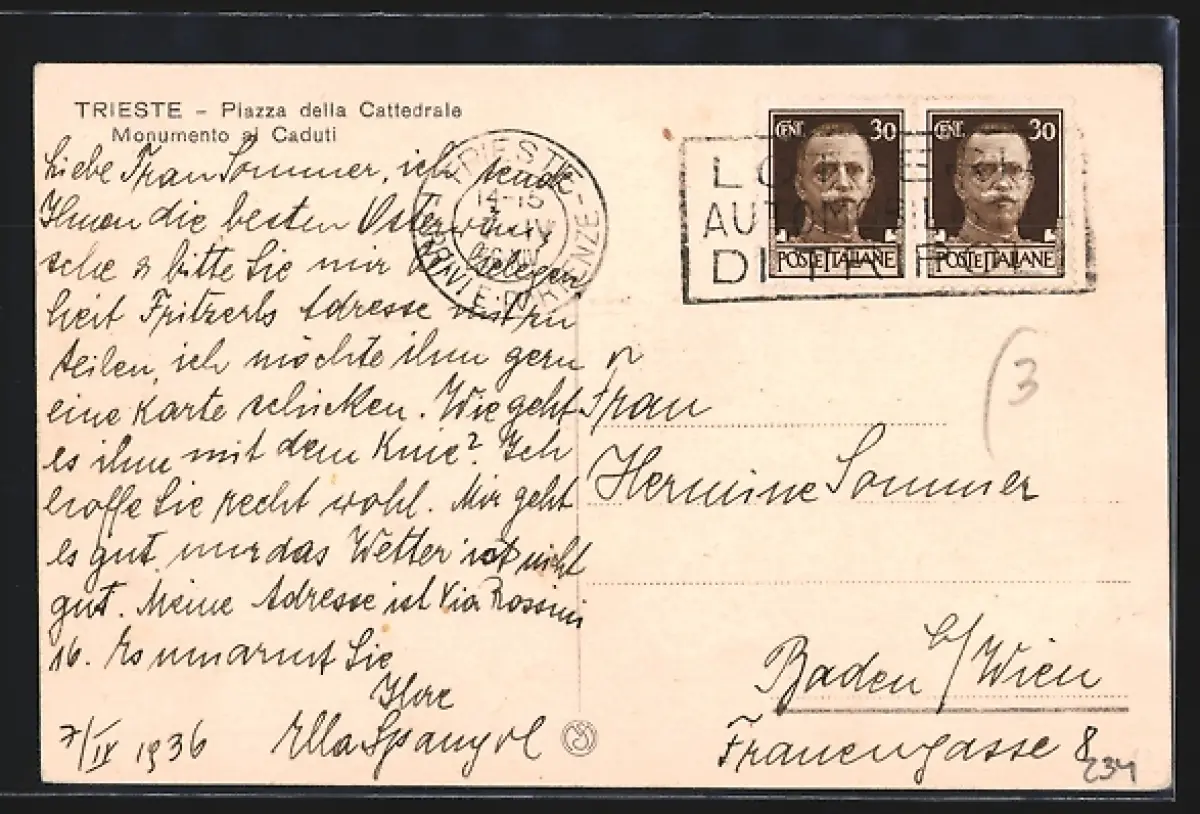 TRIESTE – Piazza della Cattedrale
Monumento ai Caduti
Liebe Frau Sommer, ich sende
Ihnen die besten Osterwün-
sche & bitte Sie mir b. Gelegen
heit Fritzerls Adresse mitzu
teilen, ich möchte ihm gern
eine Karte schicken. Wie geht
es ihm mit dem Knie? Ich
hoffe Sie recht wohl. Mir geht
es gut, nur das Wetter ist nicht
gut. Meine Adresse ist Via Rossini
16. Es umarmt Sie
Ihre
Ella Spanyol
7/IV 1936
TRIESTE
14-15
IV
CENT. 30
POSTE ITALIANE
CENT. 30
POSTE ITALIANE
AUTOMOBIL
DI TRIPOLI
(3
Frau
Hermine Sommer
Baden b/Wien
Frauengasse 8
234